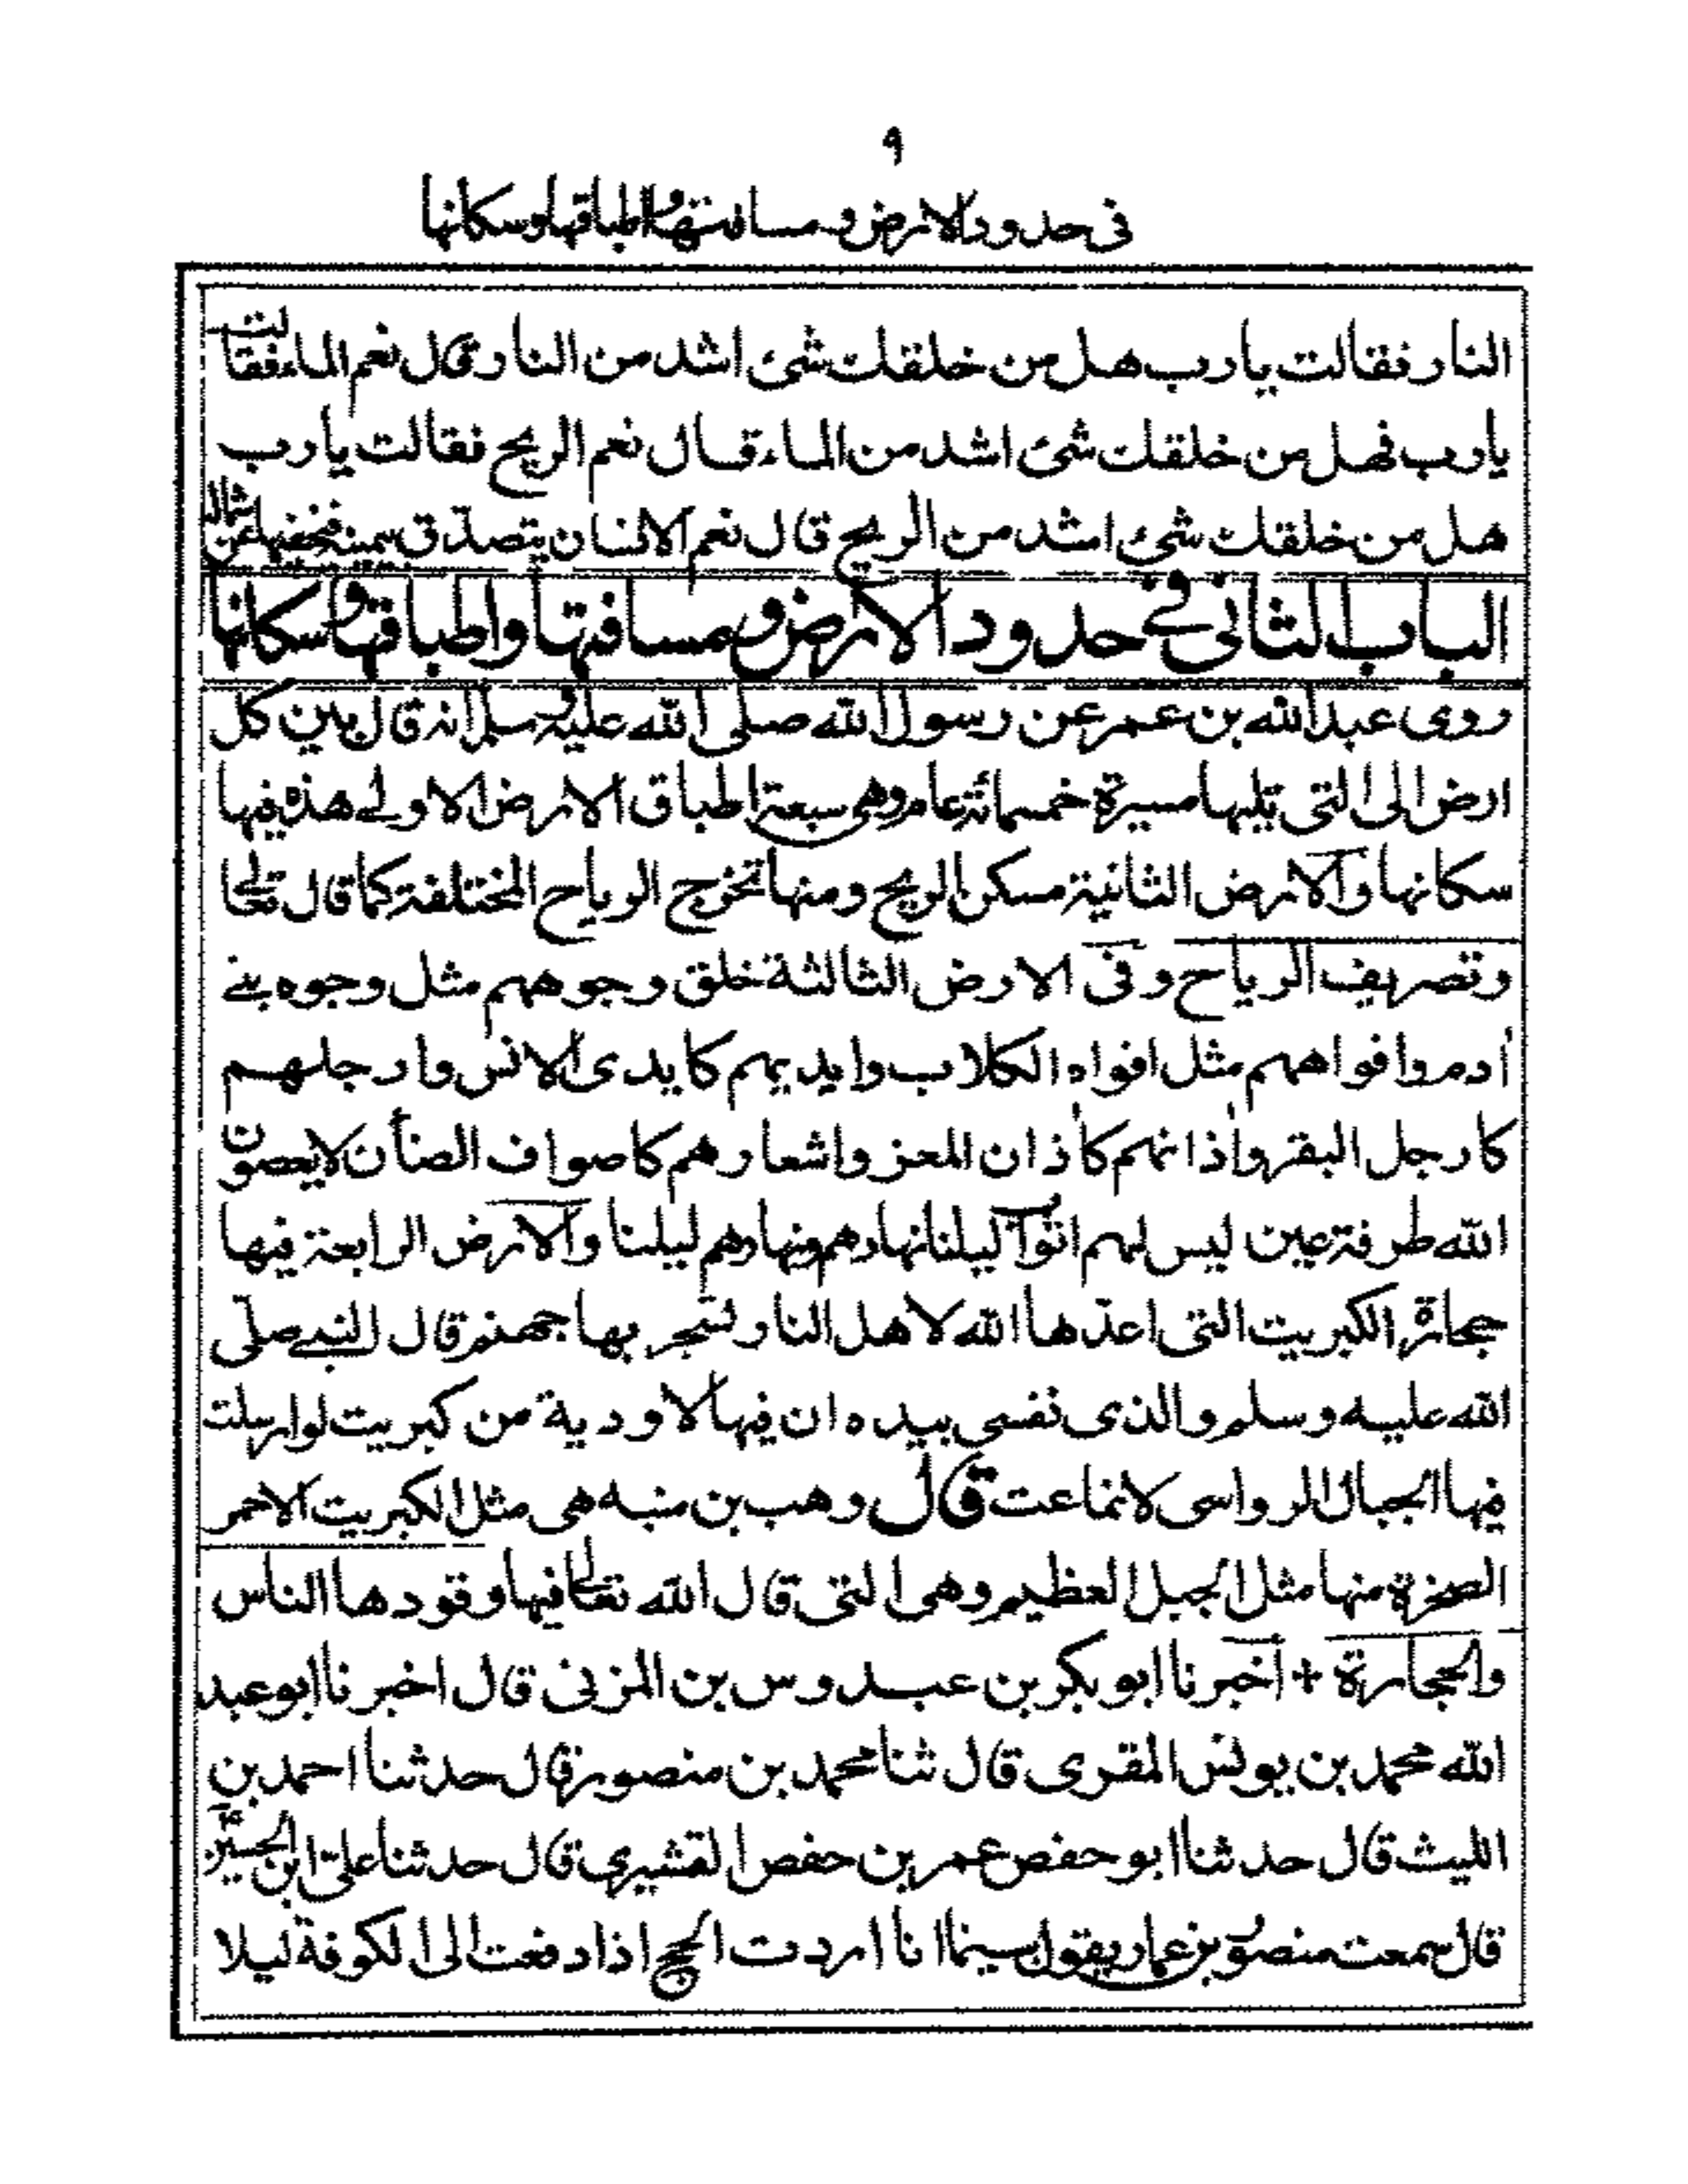 ٩
فى حدود الارض ومسافتها واطباقها وسكانها
النار فقالت يارب هل من خلقك شئ اشد من النار قال نعم الماء فقالت
يارب فهل من خلقك شئ اشد من الماء قال نعم الريح فقالت يارب
هل من خلقك شئ اشد من الريح قال نعم الانسان يتصدّق بيمينه فيخفيها عن شماله
الباب الثانى فے حدود الارض ومسافتها واطباقها وسكانها
روى عبد الله بن عمر عن رسول الله صلى الله عليه وسلم انه قال بين كل
ارض الى التى تليها مسيرة خمسمائة عام وهى سبعة اطباق الارض الاولے هذه فيها
سكانها والارض الثانية مسكن الريح ومنها تخرج الرياح المختلفة كما قال تعالى
وتصريف الرياح وفى الارض الثالثة خلق وجوههم مثل وجوه بنے
أدم وافواههم مثل افواه الكلاب وايديهم كايدى الانس وارجلهم
كارجل البقر واذانهم كأذان المعز واشعارهم كاصواف الضأن لايعصون
الله طرفة عين ليس لهم اثواب ليلنا نهارهم ونهارهم ليلنا والارض الرابعة فيها
حجارة الكبريت التى اعدّها الله لاهل النار لتسجر بها جهنم قال النبے صلّى
الله عليه وسلم والذى نفسى بيده ان فيها لاودية من كبريت لو ارسلت
فيها الجبال الرواسى لانماعت قال وهب بن منبه هى مثل الكبريت الاحمر
الصخرة منها مثل الجبل العظيم وهى التى قال الله تعالى فيها وقودها الناس
والحجارة + أخبرنا ابو بكر بن عبدوس بن المزنى قال اخبرنا ابو عبد
الله محمد بن يونس المقرى قال ثنا محمد بن منصور قال حدثنا احمد بن
الليث قال حدثنا ابو حفص عمر بن حفص القشيرى قال حدثنا علىّ ابن الحسين
قال سمعت منصور بن عمار يقول بينما انا اردت الحج اذا دفعت الى الكوفة ليلا